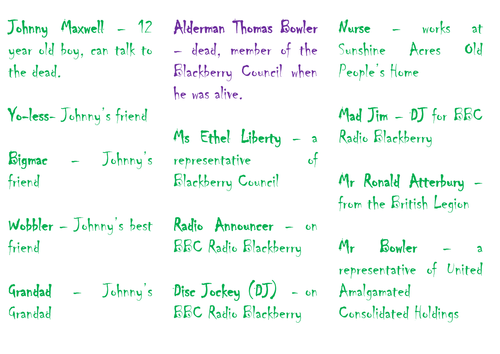 Johnny Maxwell – 12
year old boy, can talk to
the dead.
Yo-less- Johnny's friend
Bigmac – Johnny's
friend
Wobbler – Johnny's best
friend
Grandad – Johnny's
Grandad
Alderman Thomas Bowler
– dead, member of the
Blackberry Council when
he was alive.
Ms Ethel Liberty – a
representative of
Blackberry Council
Radio Announcer – on
BBC Radio Blackberry
Disc Jockey (DJ) – on
BBC Radio Blackberry
Nurse – works at
Sunshine Acres Old
People's Home
Mad Jim – DJ for BBC
Radio Blackberry
Mr Ronald Atterbury –
from the British Legion
Mr Bowler – a
representative of United
Amalgamated
Consolidated Holdings